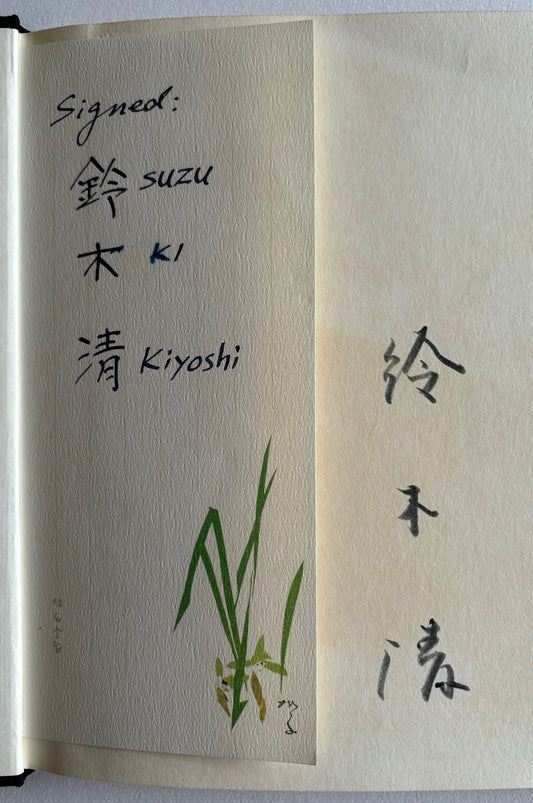 Signed:
鈴 suzu
木 KI
清 Kiyoshi
鈴
木
清